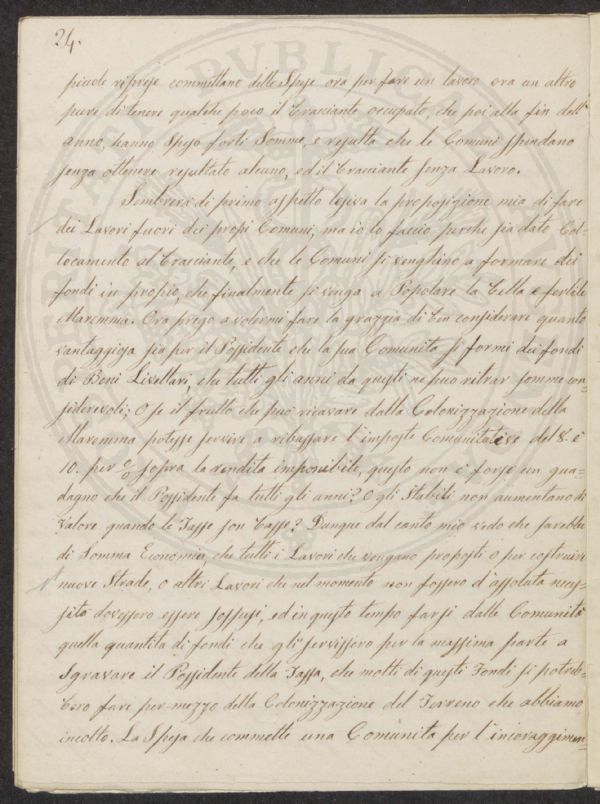 24.
piccole riprese committano delle Spese ora per fare un lavoro ora un altro
pure di tenere qualche poco il Bracciante occupato, che poi alla fin dell'
anno, hanno Speso forti Somme, e resulta che le Comuni spendano
senza ottenere resultato alcuno, ed il Bracciante senza Lavoro.
Sembrerà di primo aspetto lesiva la proposizione mia di fare
dei Lavori fuori dei propi Comuni, ma io lo faccio perche sia dato Col-
locamento al Bracciante, e che le Comuni si venghino a formare dei
fondi in propio, che finalmente si venga a Popolare la Bella e fertile
Maremma. Ora prego a volermi fare la grazzia di ben considerare quanto
vantaggiosa sia per il Possidente che la sua Comunità si formi dei fondi
di Beni Livellari, che tutti gli anni da questi ne puo ritrar somme con-
siderevoli; O se il frutto che può ricavare dalla Colonizzazione della
Maremma potesse servire a ribassare l'imposte Comunitative del 8. e
10. per % sopra la rendita imponibile, questo non è forse un gua-
dagno che il Possidente fa tutti gli anni? O gli Stabili non aumentano di
Valore quando le Tasse son Basse? Dunque dal canto mio vedo che sarebbe
di Somma Economia, che tutti i Lavori che vengano proposti o per costruire
nuove Strade, o altri Lavori che nel momento non fossero d'assoluta neces-
sità dovessero essere sospesi, ed in questo tempo farsi dalle Comunità
quella quantità di fondi che gli servissero per la massima parte a
Sgravare il Possidente della Tassa, che molti di questi Fondi si potreb-
bero fare per mezzo della Colonizzazione del Terreno che abbiamo
incolto. La Spesa che commette una Comunità per l'incoraggimen-